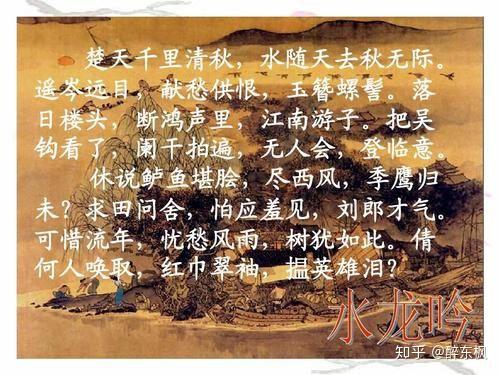 楚天千里清秋，水随天去秋无际。
遥岑远目，献愁供恨，玉簪螺髻。落
日楼头，断鸿声里，江南游子。把吴
钩看了，阑干拍遍，无人会，登临意。
休说鲈鱼堪脍，尽西风，季鹰归
未？求田问舍，怕应羞见，刘郎才气。
可惜流年，忧愁风雨，树犹如此。倩
何人唤取，红巾翠袖，揾英雄泪？
水龙吟
知乎 @醉东枫